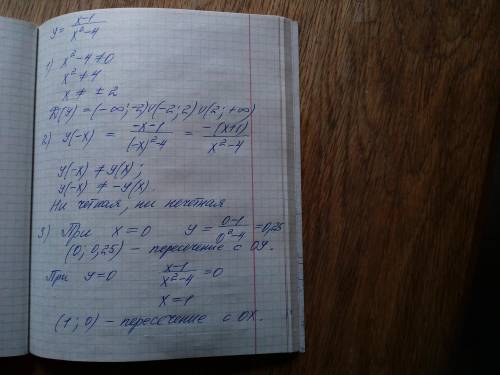 y = x-1 / x²-4
1) x²-4≠0
x²≠4
x ≠ ± 2
D(y) = (-∞; -2)∪(-2; 2)∪(2; +∞)
2) y(-x) = -x-1 / (-x)²-4 = -(x+1) / x²-4
y(-x) ≠ y(x);
y(-x) ≠ -y(x).
Ни четная, ни нечетная
3) При x=0 y = 0-1 / 0²-4 = 0,25
(0; 0,25) - пересечение с OY.
При y=0 x-1 / x²-4 = 0
x=1
(1; 0) - пересечение с OX.